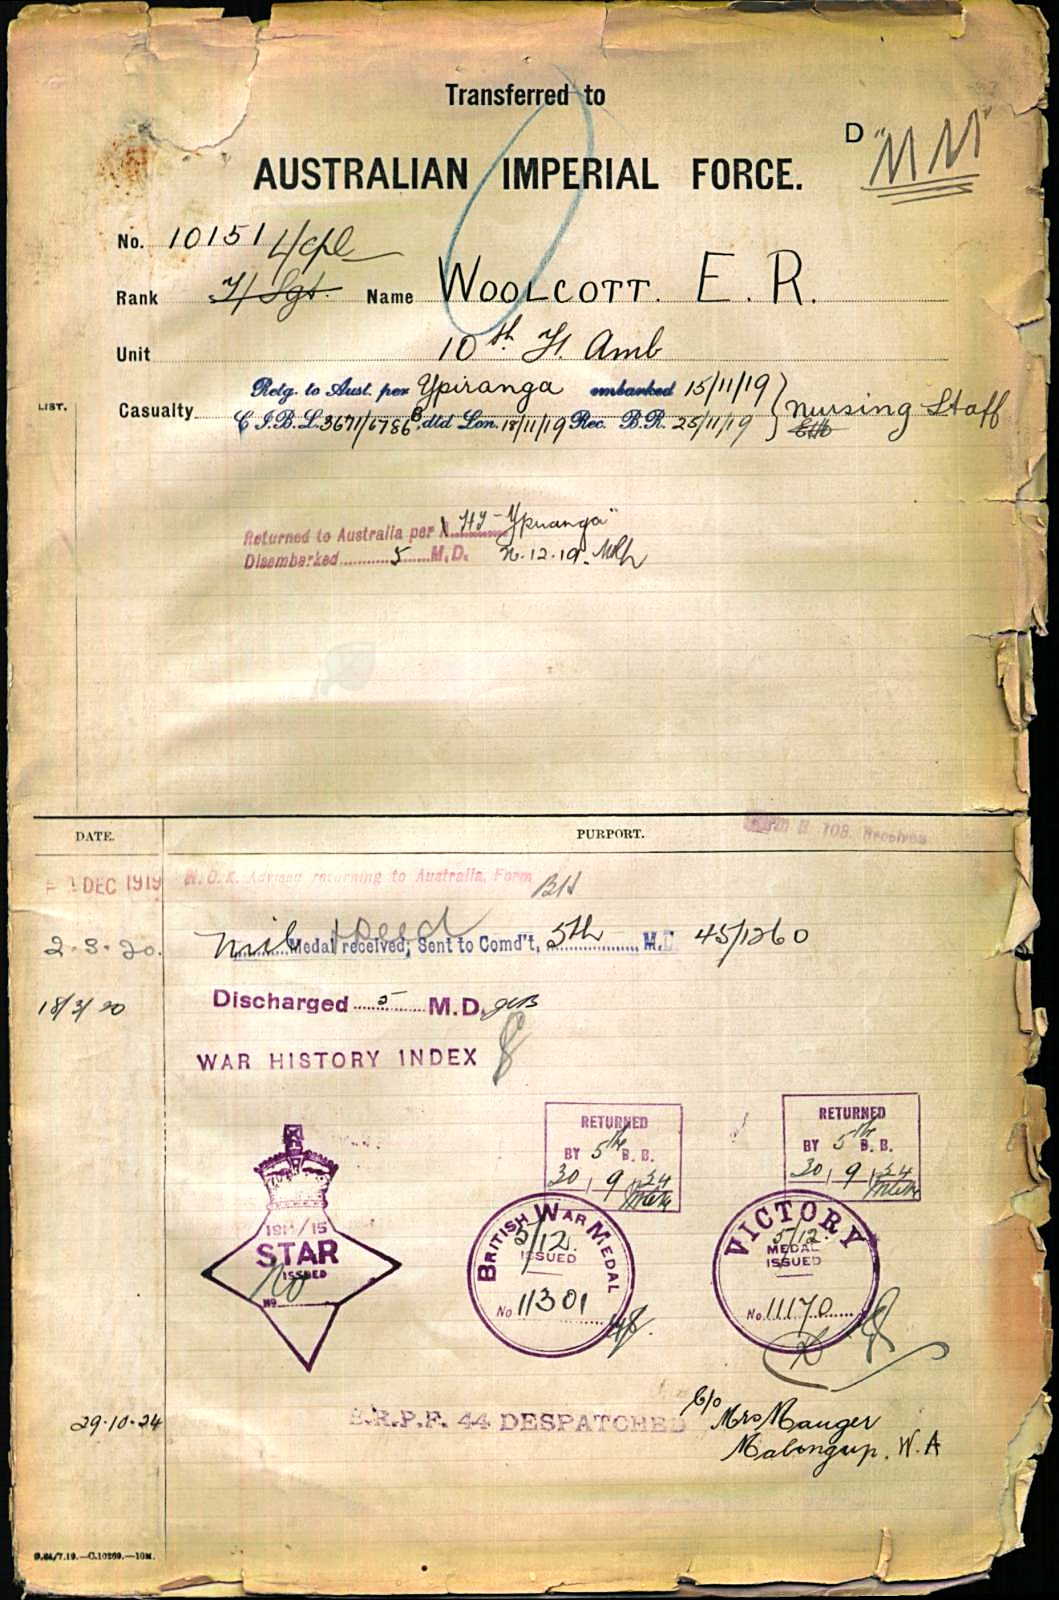 Transferred to
D "MM"
AUSTRALIAN IMPERIAL FORCE.
No. 10151 L/Cpl
Rank T/Sgt. Name WOOLCOTT. E. R.
Unit 10th F. Amb
LIST.
Casualty
Retg. to Aust. per Ypiranga embarked 15/11/19
C I.B.L. 3671/6786B dtd Lon. 18/11/19 Rec. B.R. 25/11/19 } Nursing Staff
Returned to Australia per HY- Ypiranga"
Disembarked 5 M.D. .12.19.
DATE. PURPORT. Form B 103. Received
DEC 1919 N.O.K. Advised returning to Australia, Form BH
2-3-20. Mil Medal received; Sent to Comd't, 5th M.D 45/1260
18/3/20 Discharged 5 M.D.
WAR HISTORY INDEX
RETURNED
BY 5th B. B.
30, 9, 24
RETURNED
BY 5th B. B.
30, 9, 24
1914/15
STAR
ISSUED
No
NO
BRITISH WAR MEDAL
5/12.
ISSUED
No 11301
VICTORY
5/12.
MEDAL
ISSUED
No. 11170
29-10-24 B.R.P.F. 44 DESPATCHED C/o Mrs Mauger
Malengup. W.A
D.84/7.19.—C.10269.—10M.